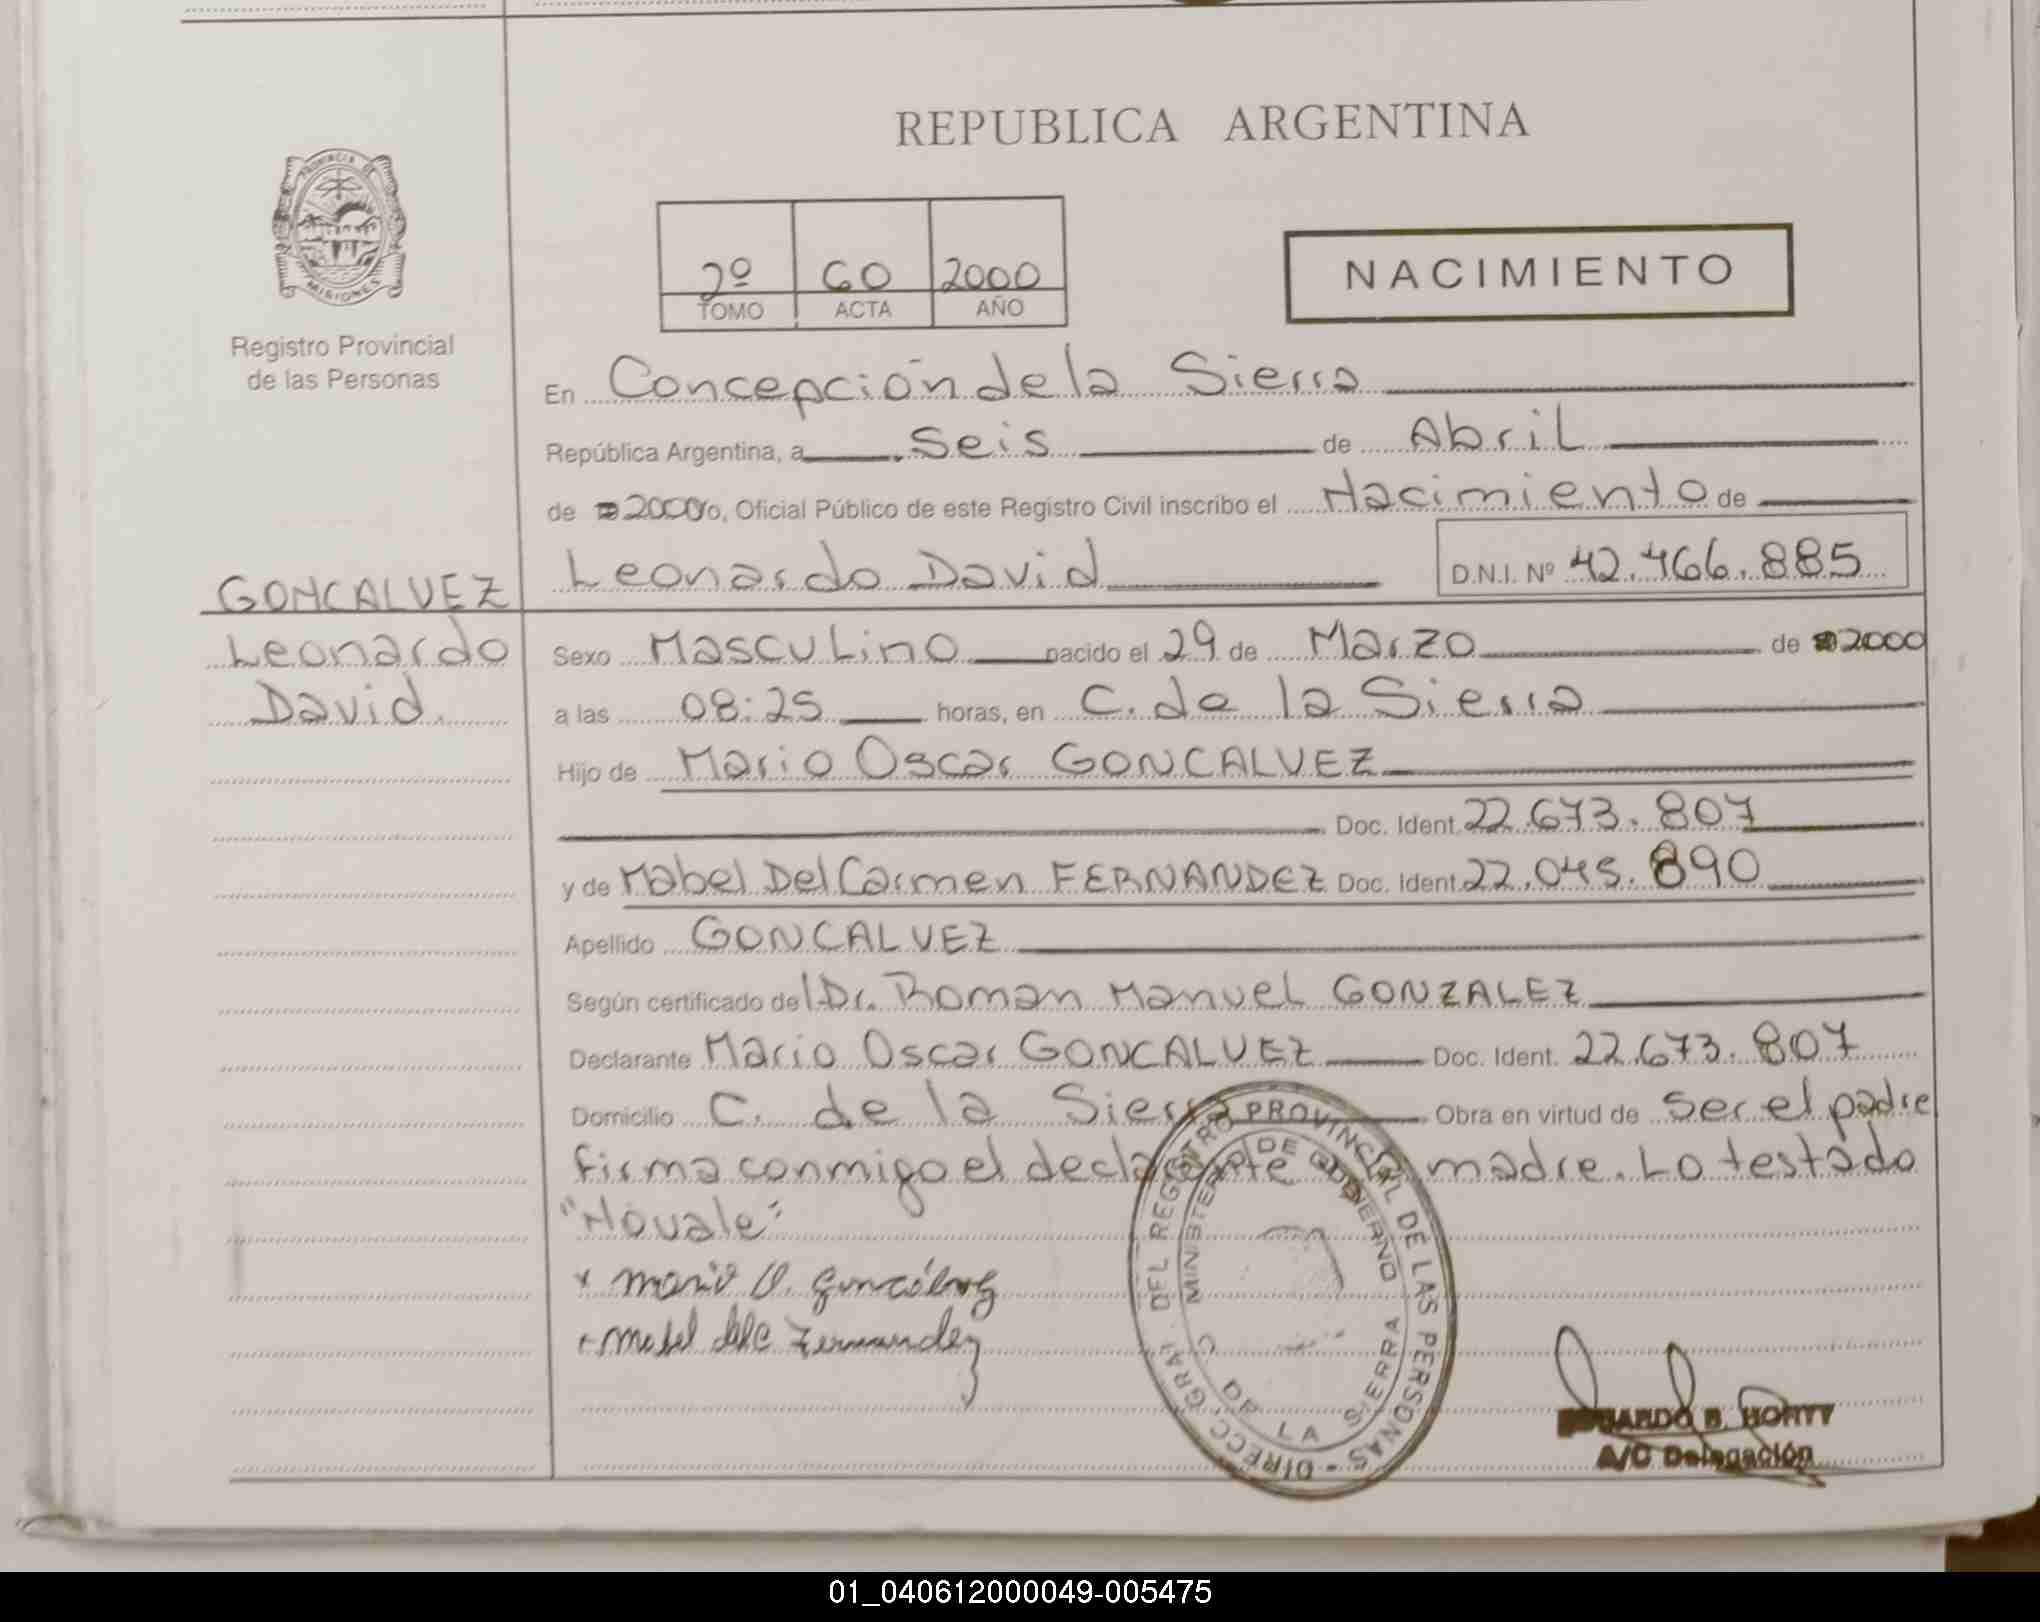 REPUBLICA ARGENTINA
PROVINCIA DE
MISIONES
Registro Provincial
de las Personas
2º 60 2000
TOMO ACTA AÑO
NACIMIENTO
En Concepción de la Sierra
República Argentina, a Seis de Abril
de 2000 yo, Oficial Público de este Registro Civil inscribo el Nacimiento de
Leonardo David D.N.I. Nº 42.466.885
GONCALVEZ
Leonardo
David.
Sexo Masculino nacido el 29 de Marzo de 2000
a las 08:25 horas, en C. de la Sierra
Hijo de Mario Oscar GONCALVEZ
Doc. Ident. 22.673.807
y de Mabel Del Carmen FERNANDEZ Doc. Ident. 22.045.890
Apellido GONCALVEZ
Según certificado del Dr. Roman Manuel GONZALEZ
Declarante Mario Oscar GONCALVEZ Doc. Ident. 22.673.807
Domicilio C. de la Sierra Obra en virtud de ser el padre
firma conmigo el declarante y la madre. Lo testado
"No vale"
Mario O. Goncálvez
Mabel del C Fernandez
DIRECC. GRAL. DEL REGISTRO PROVINCIAL DE LAS PERSONAS
MINISTERIO DE GOBIERNO
C. DE LA SIERRA
A/C Delegación
01_040612000049-005475